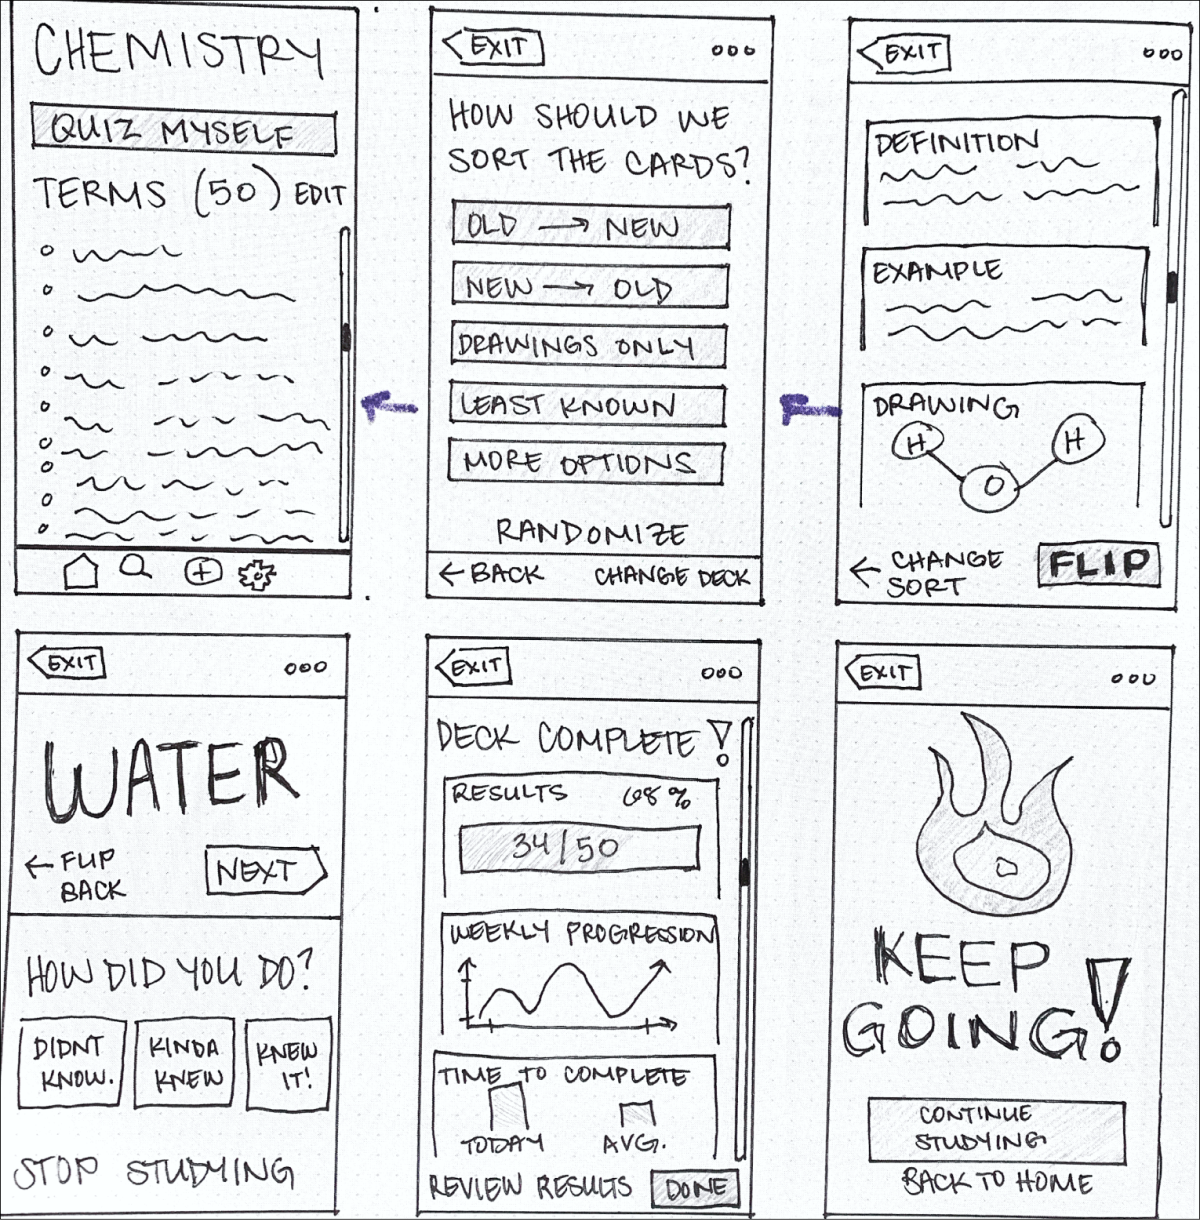 CHEMISTRY
QUIZ MYSELF
TERMS (50) EDIT
EXIT
HOW SHOULD WE
SORT THE CARDS?
OLD → NEW
NEW → OLD
DRAWINGS ONLY
LEAST KNOWN
MORE OPTIONS
RANDOMIZE
← BACK CHANGE DECK
EXIT
DEFINITION
EXAMPLE
DRAWING
H H
O
← CHANGE
SORT
FLIP
EXIT
WATER
← FLIP
BACK
NEXT
HOW DID YOU DO?
DIDNT
KNOW.
KINDA
KNEW
KNEW
IT!
STOP STUDYING
EXIT
DECK COMPLETE!
RESULTS 68%
34/50
WEEKLY PROGRESSION
TIME TO COMPLETE
TODAY AVG.
REVIEW RESULTS DONE
EXIT
KEEP
GOING!
CONTINUE
STUDYING
BACK TO HOME